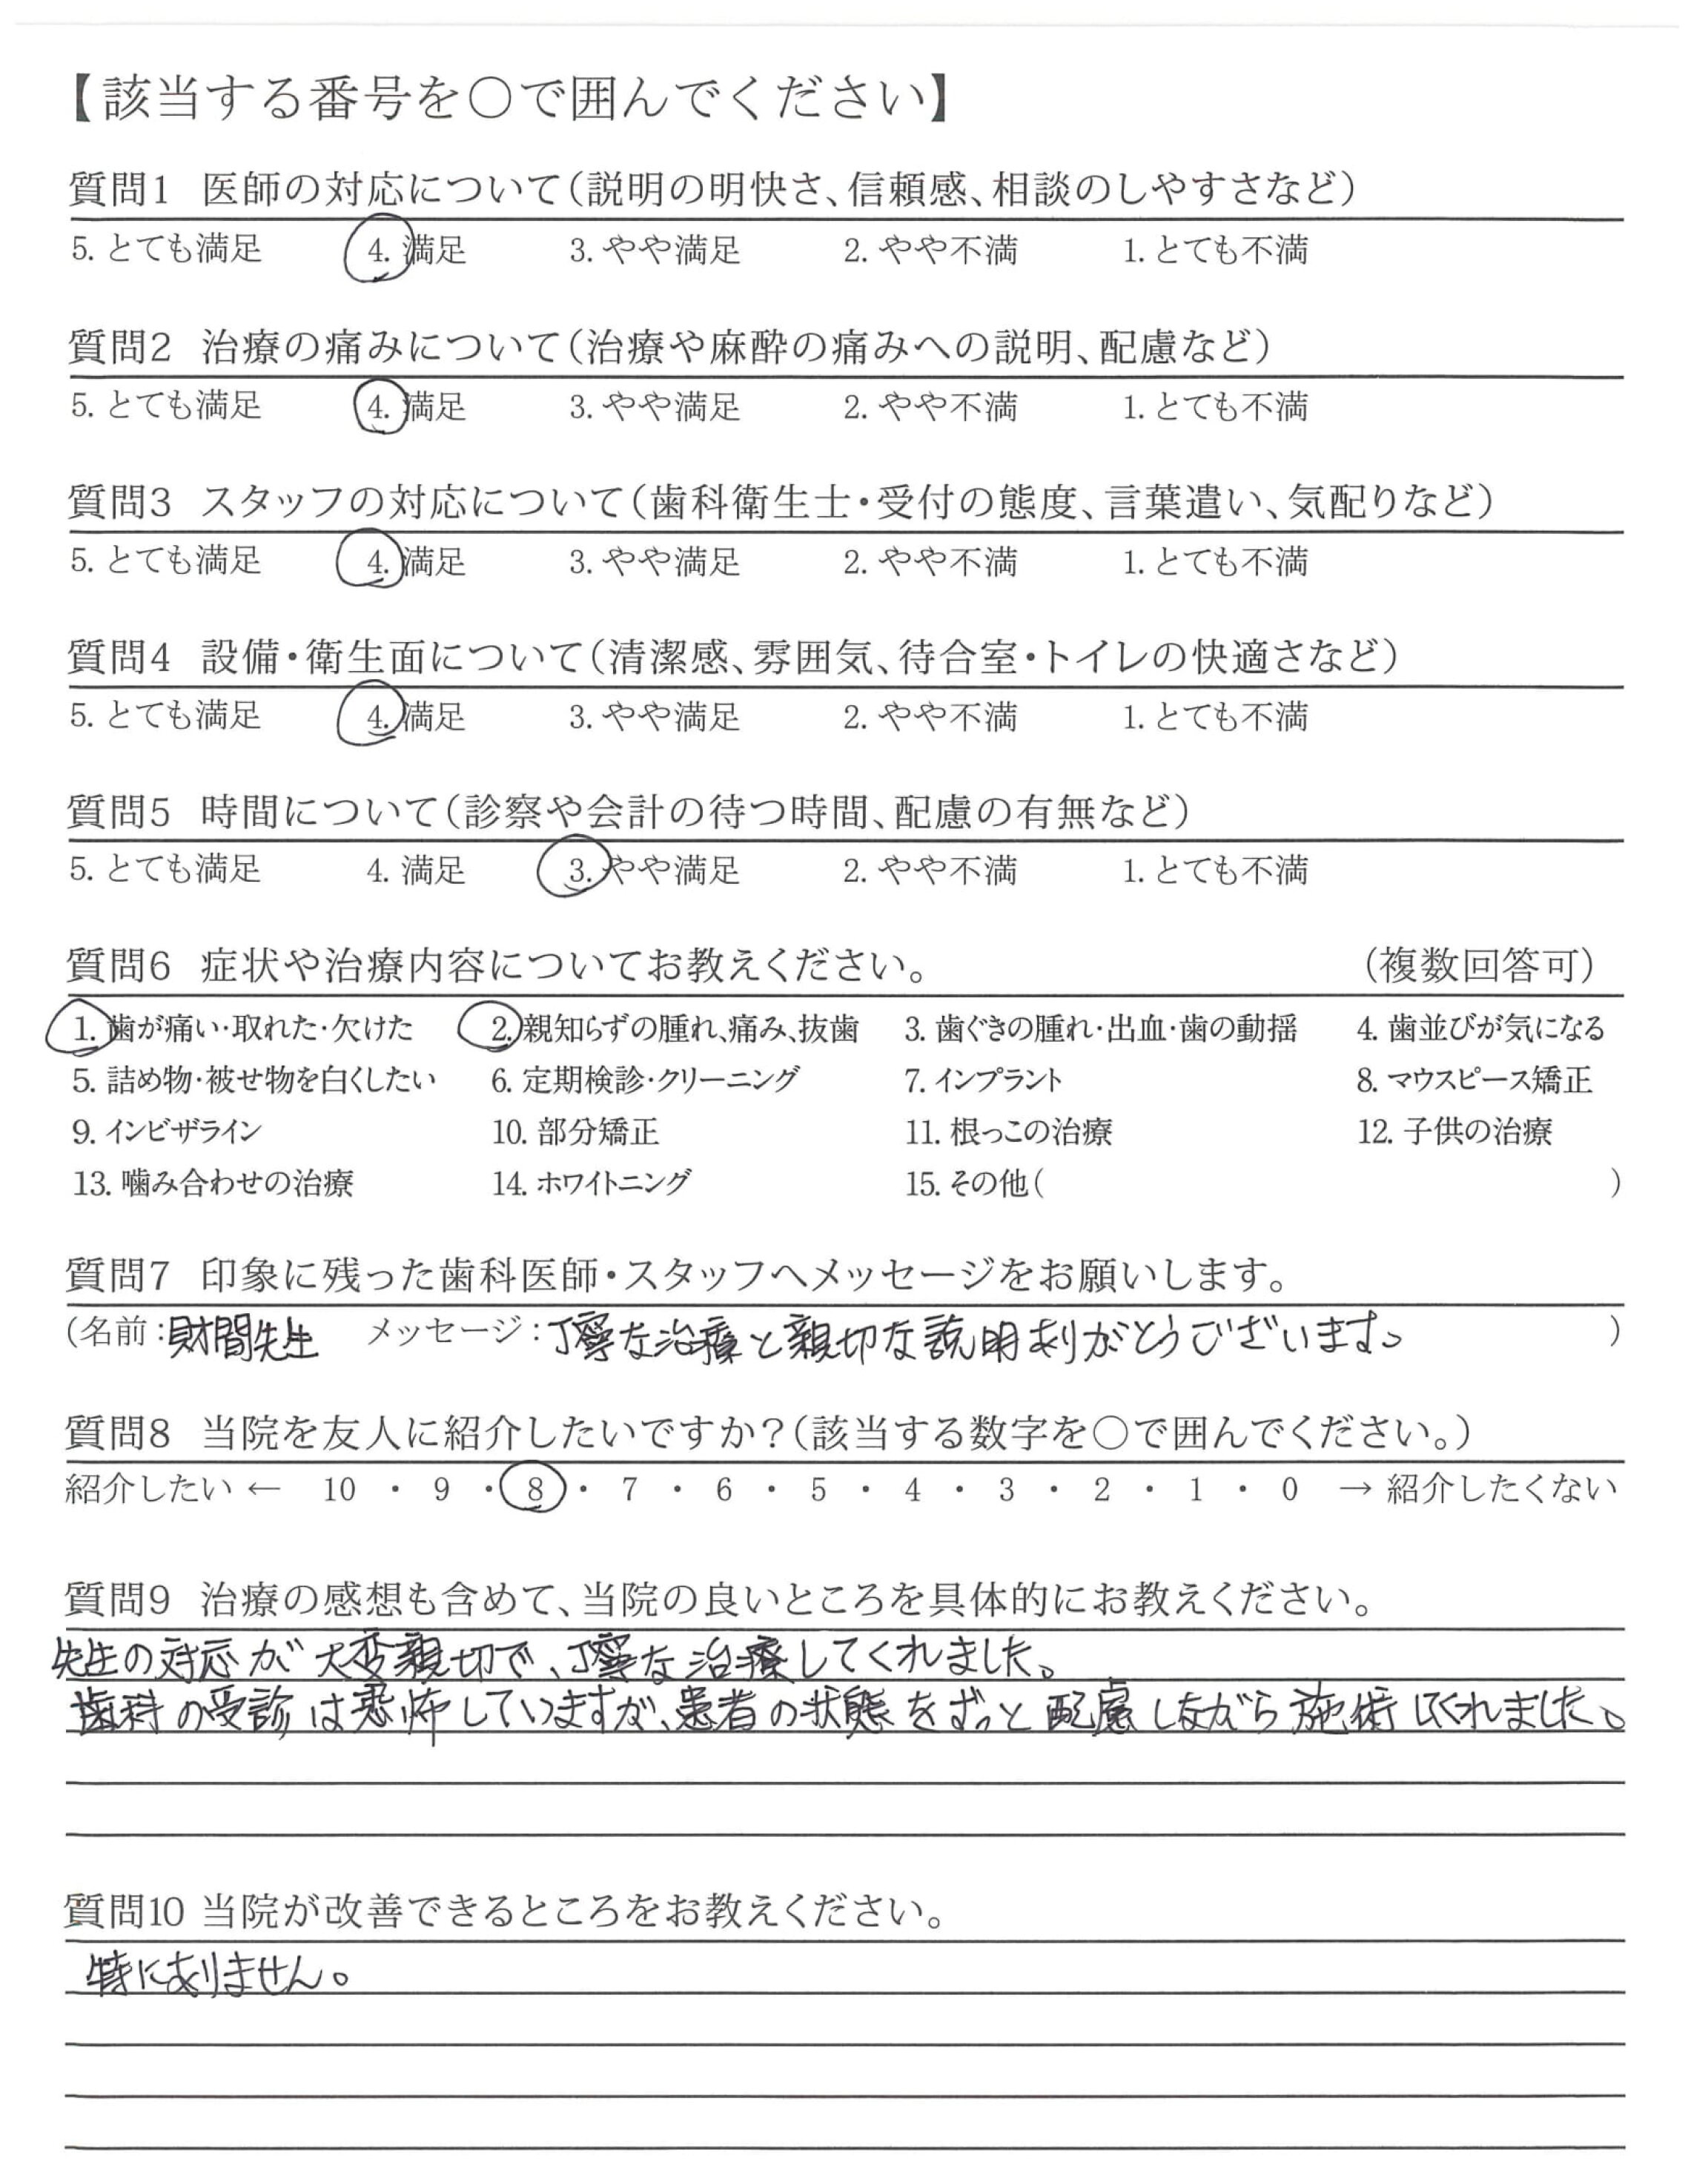 【該当する番号を〇で囲んでください】
質問1 医師の対応について(説明の明快さ、信頼感、相談のしやすさなど)
5. とても満足 4. 満足 3. やや満足 2. やや不満 1. とても不満
質問2 治療の痛みについて(治療や麻酔の痛みへの説明、配慮など)
5. とても満足 4. 満足 3. やや満足 2. やや不満 1. とても不満
質問3 スタッフの対応について(歯科衛生士・受付の態度、言葉遣い、気配りなど)
5. とても満足 4. 満足 3. やや満足 2. やや不満 1. とても不満
質問4 設備・衛生面について(清潔感、雰囲気、待合室・トイレの快適さなど)
5. とても満足 4. 満足 3. やや満足 2. やや不満 1. とても不満
質問5 時間について(診察や会計の待つ時間、配慮の有無など)
5. とても満足 4. 満足 3. やや満足 2. やや不満 1. とても不満
質問6 症状や治療内容についてお教えください。 (複数回答可)
1. 歯が痛い・取れた・欠けた 2. 親知らずの腫れ、痛み、抜歯 3. 歯ぐきの腫れ・出血・歯の動揺 4. 歯並びが気になる
5. 詰め物・被せ物を白くしたい 6. 定期検診・クリーニング 7. インプラント 8. マウスピース矯正
9. インビザライン 10. 部分矯正 11. 根っこの治療 12. 子供の治療
13. 噛み合わせの治療 14. ホワイトニング 15. その他( )
質問7 印象に残った歯科医師・スタッフへメッセージをお願いします。
(名前:財間先生 メッセージ:丁寧な治療と親切な説明ありがとうございます。 )
質問8 当院を友人に紹介したいですか?(該当する数字を〇で囲んでください。)
紹介したい ← 10 ・ 9 ・ 8 ・ 7 ・ 6 ・ 5 ・ 4 ・ 3 ・ 2 ・ 1 ・ 0 → 紹介したくない
質問9 治療の感想も含めて、当院の良いところを具体的にお教えください。
先生の対応が大変親切で、丁寧な治療してくれました。
歯科の受診は恐怖していますが、患者の状態をずっと配慮しながら施術してくれました。
質問10 当院が改善できるところをお教えください。
特にありません。